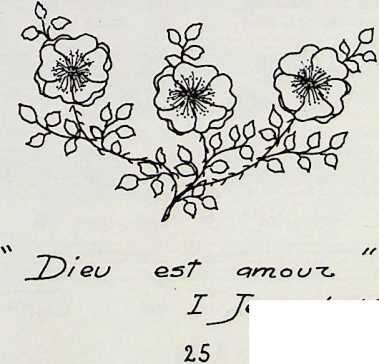 " Dieu est amour "
I
25